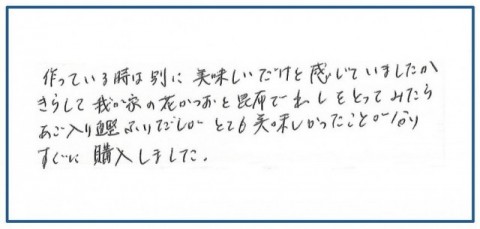 作っている時は別に美味しいだけと感じていましたが
きらして我が家の花かつおと昆布で出しをとってみたら
あご入り鰹ふりだしが とても美味しかったことがなり
すぐに購入しました。